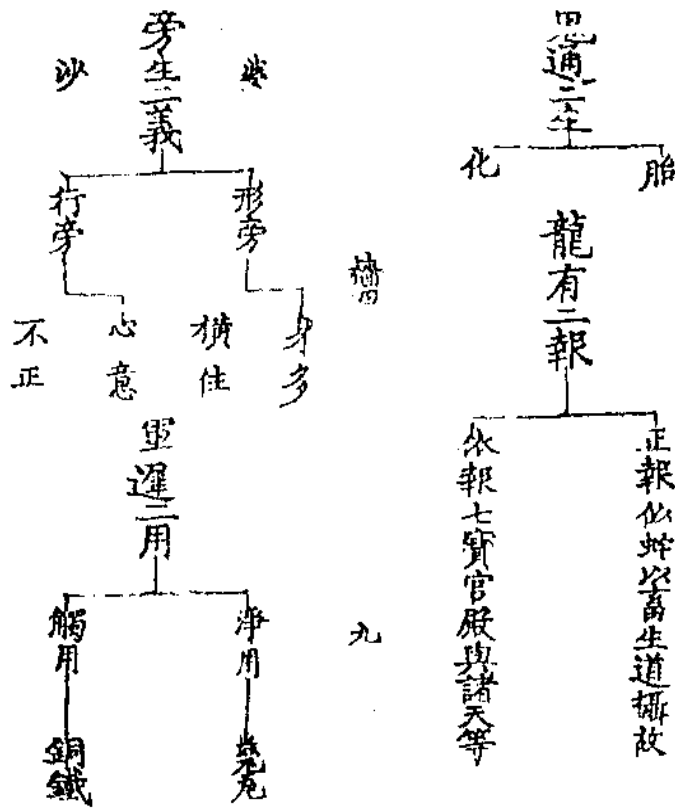 鬼通二生
胎
化
龍有二報
正報似蛇以畜生道攝故
依報七寶宮殿與諸天等
九
旁生二義
婆
沙
形旁
身多
橫住
行旁
心意
不正
軍遲二用
淨用
瓷瓦
觸用
銅鐵